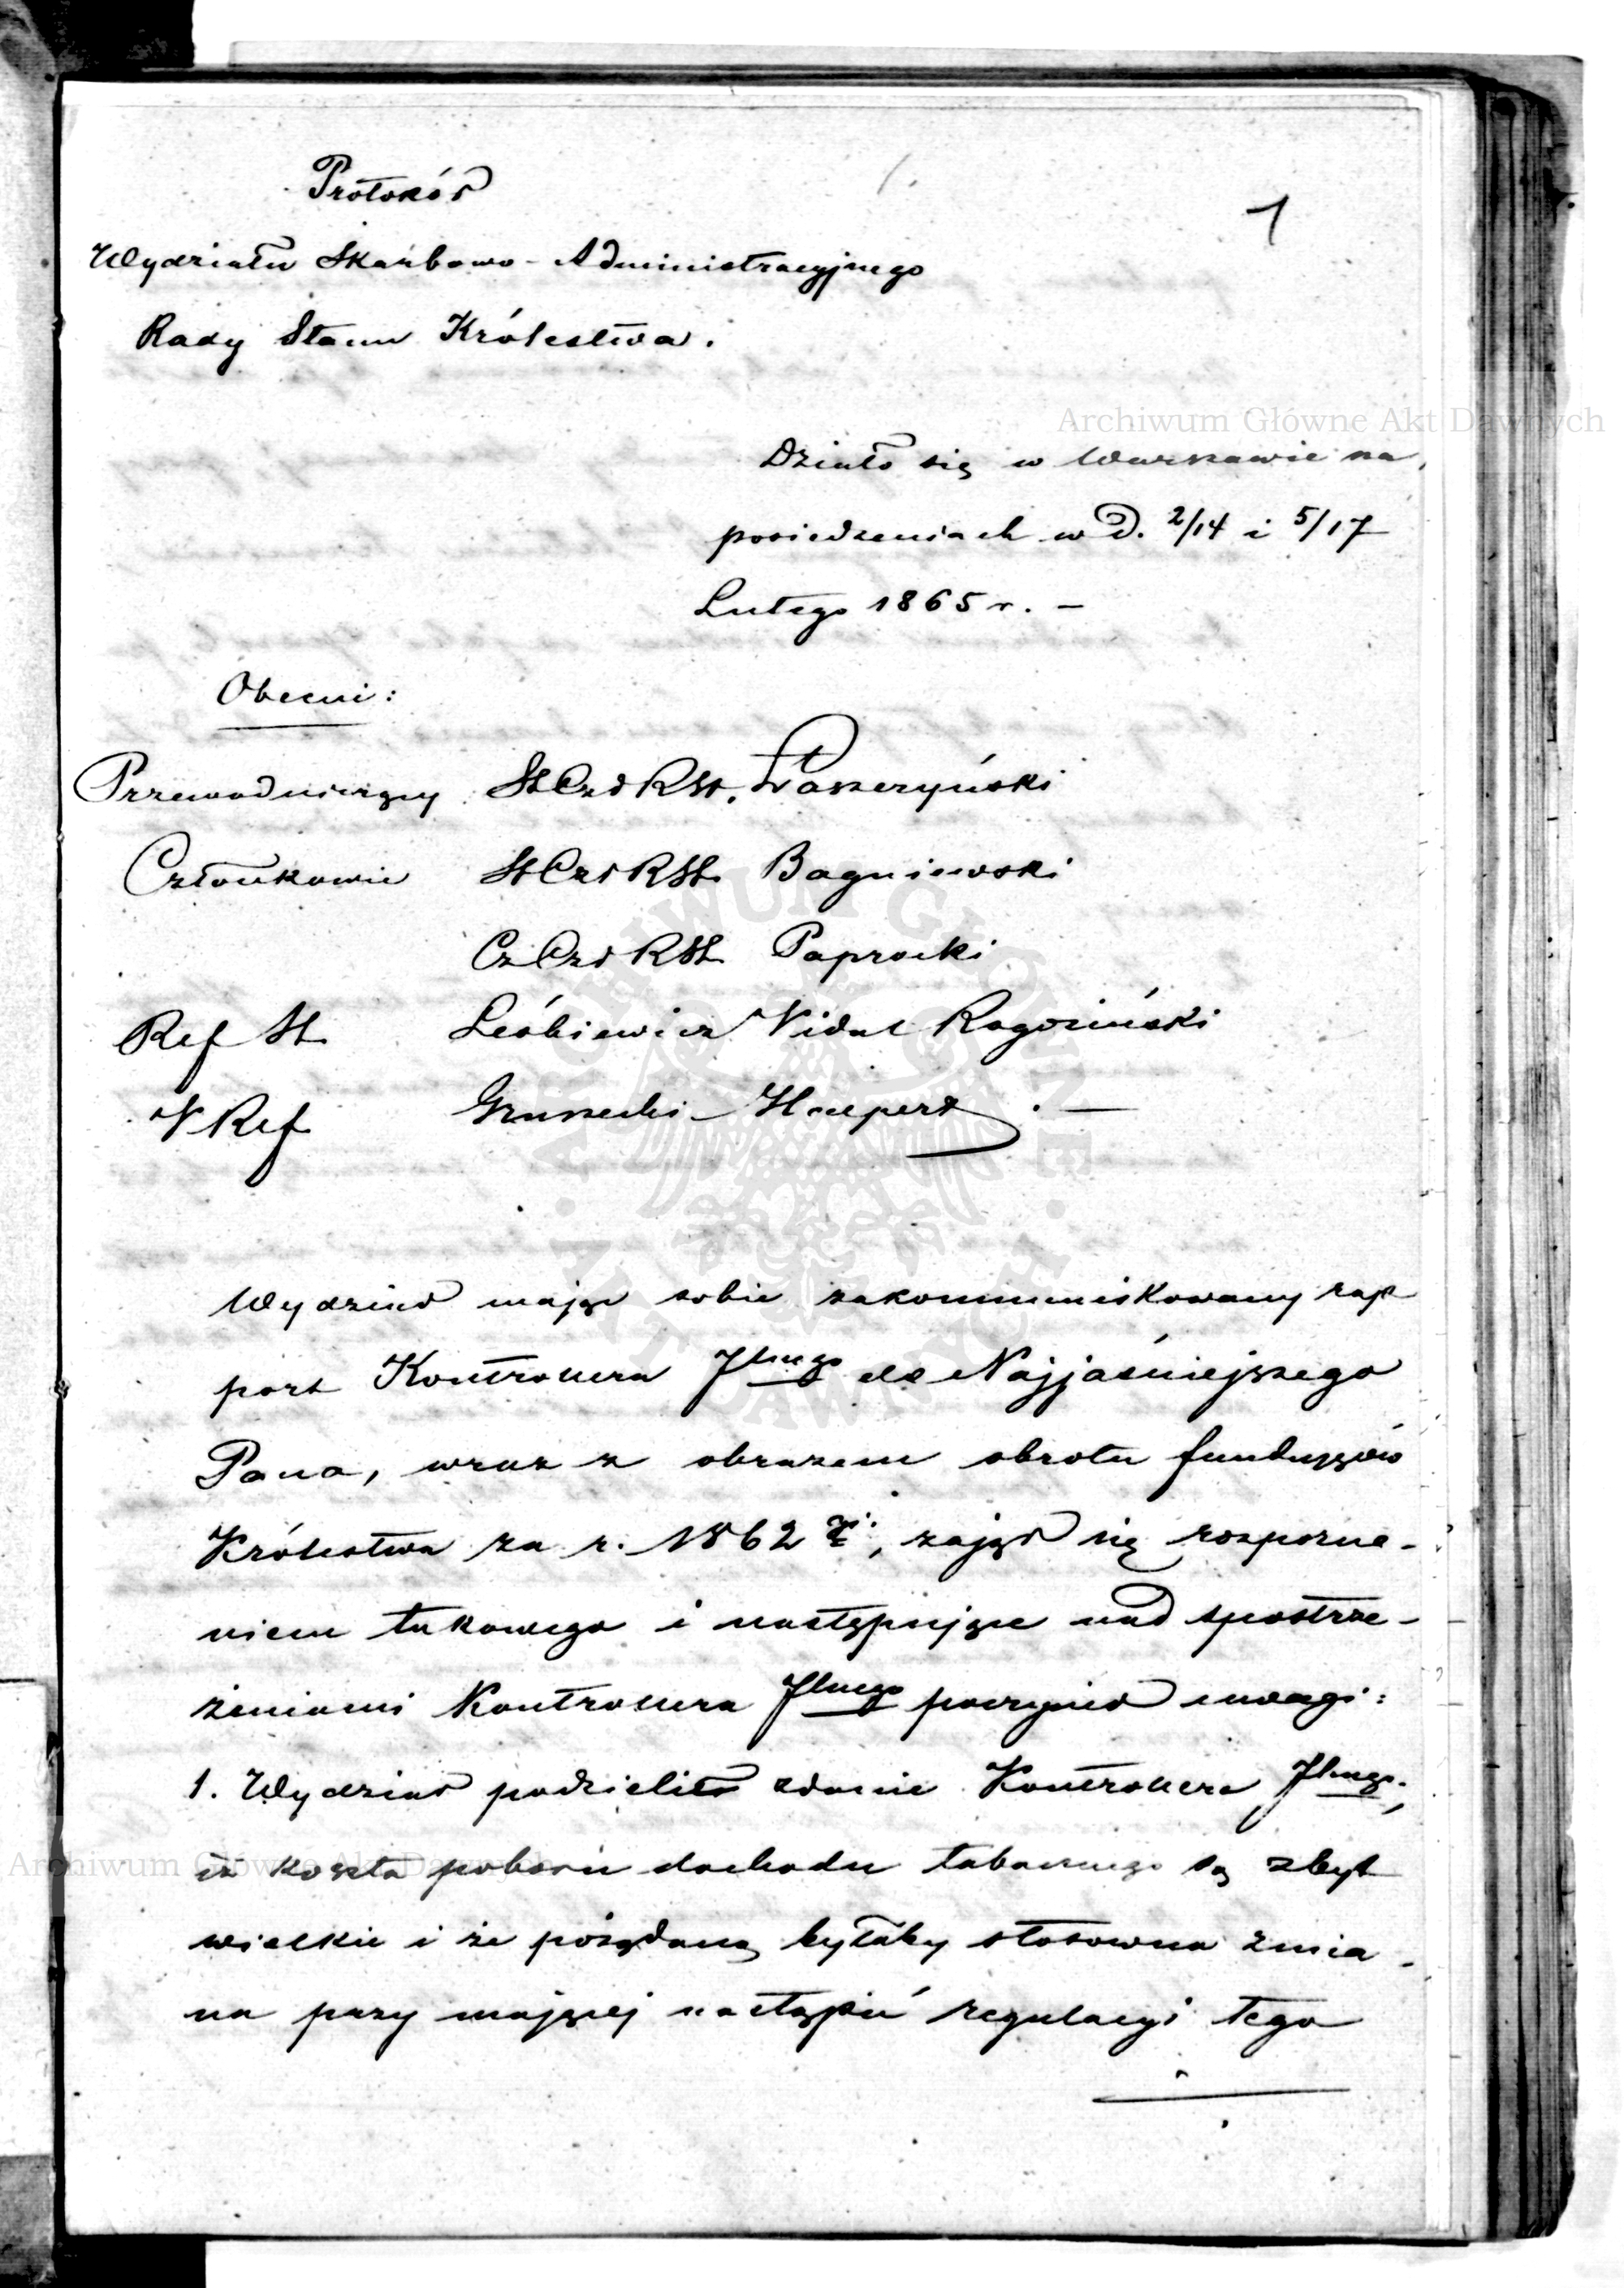 1
Protokół
Wydziału Skarbowo-Administracyjnego
Rady Stanu Królestwa.
Archiwum Główne Akt Dawnych
Działo się w Warszawie na
posiedzeniach w d. 2/14 i 5/17
Lutego 1865 r. –
Obecni:
Przewodniczący StCzłRSt. Łaszczyński
Członkowie StCzłRSt Bagniewski
CzCzłRSt Paprocki
Ref St Leśkiewicz Vidal Rogoziński
V Ref Gruszecki Huepert. —
ARCHIWUM GŁÓWNE · AKT DAWNYCH ·
Wydział mając sobie zakommunikowany rap
port Kontrollera Jlnego do Najjaśniejszego
Pana, wraz z obrazem obrotu funduszów
Królestwa za r. 1862, zajął się rozpozna-
niem takowego i następujące nad spostrze-
żeniami Kontrollera Jlnego poczynił uwagi:
1. Wydział podzielił zdanie Kontrollera Jlnego,
iż koszta poboru dochodu tabacznego są zbyt
Archiwum Główne Akt Dawnych
wielkie i że pożądaną byłaby stosowna zmia-
na przy mającej nastąpić regulacyi tego